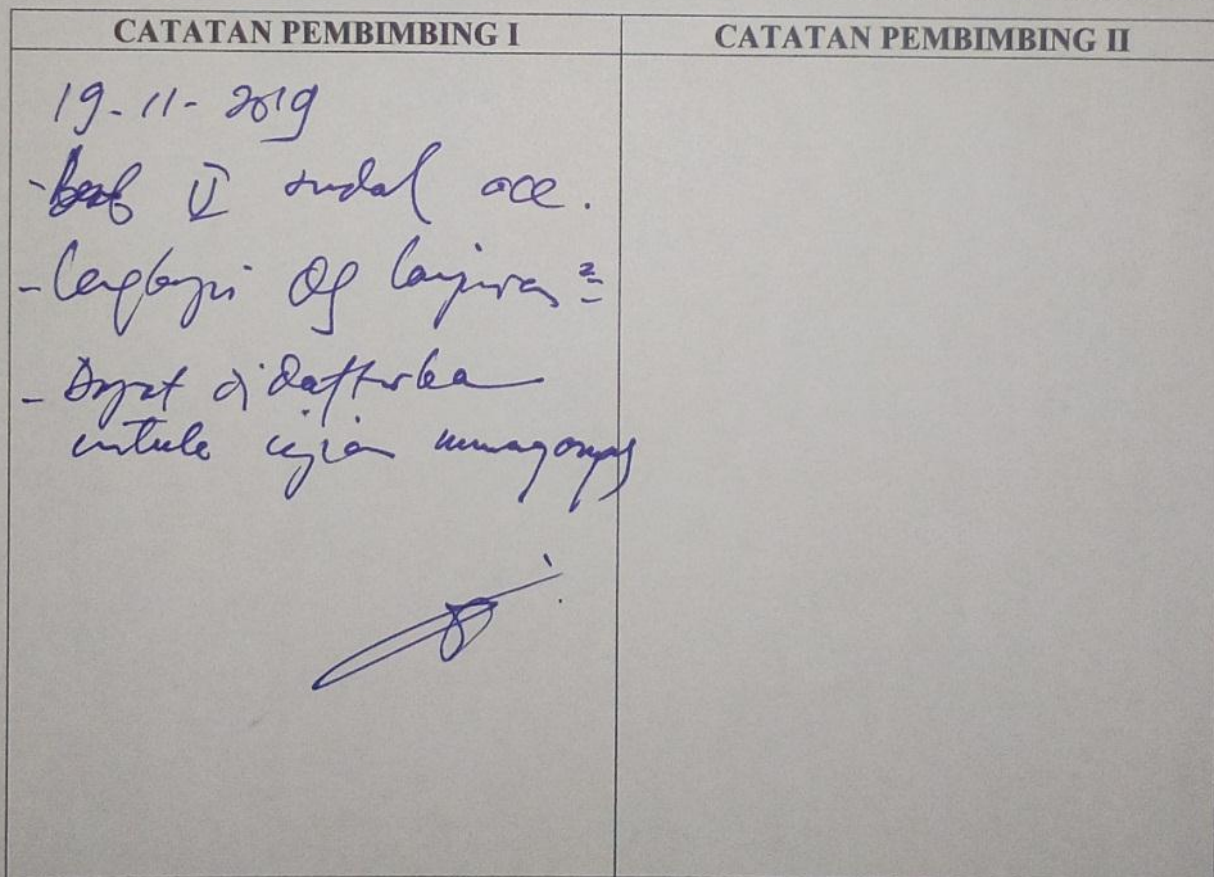 CATATAN PEMBIMBING I CATATAN PEMBIMBING II
19-11-2019
- Bab V sudah acc.
- Lengkapi dg lampiran²
- Dapat didaftarka
untuk ujian